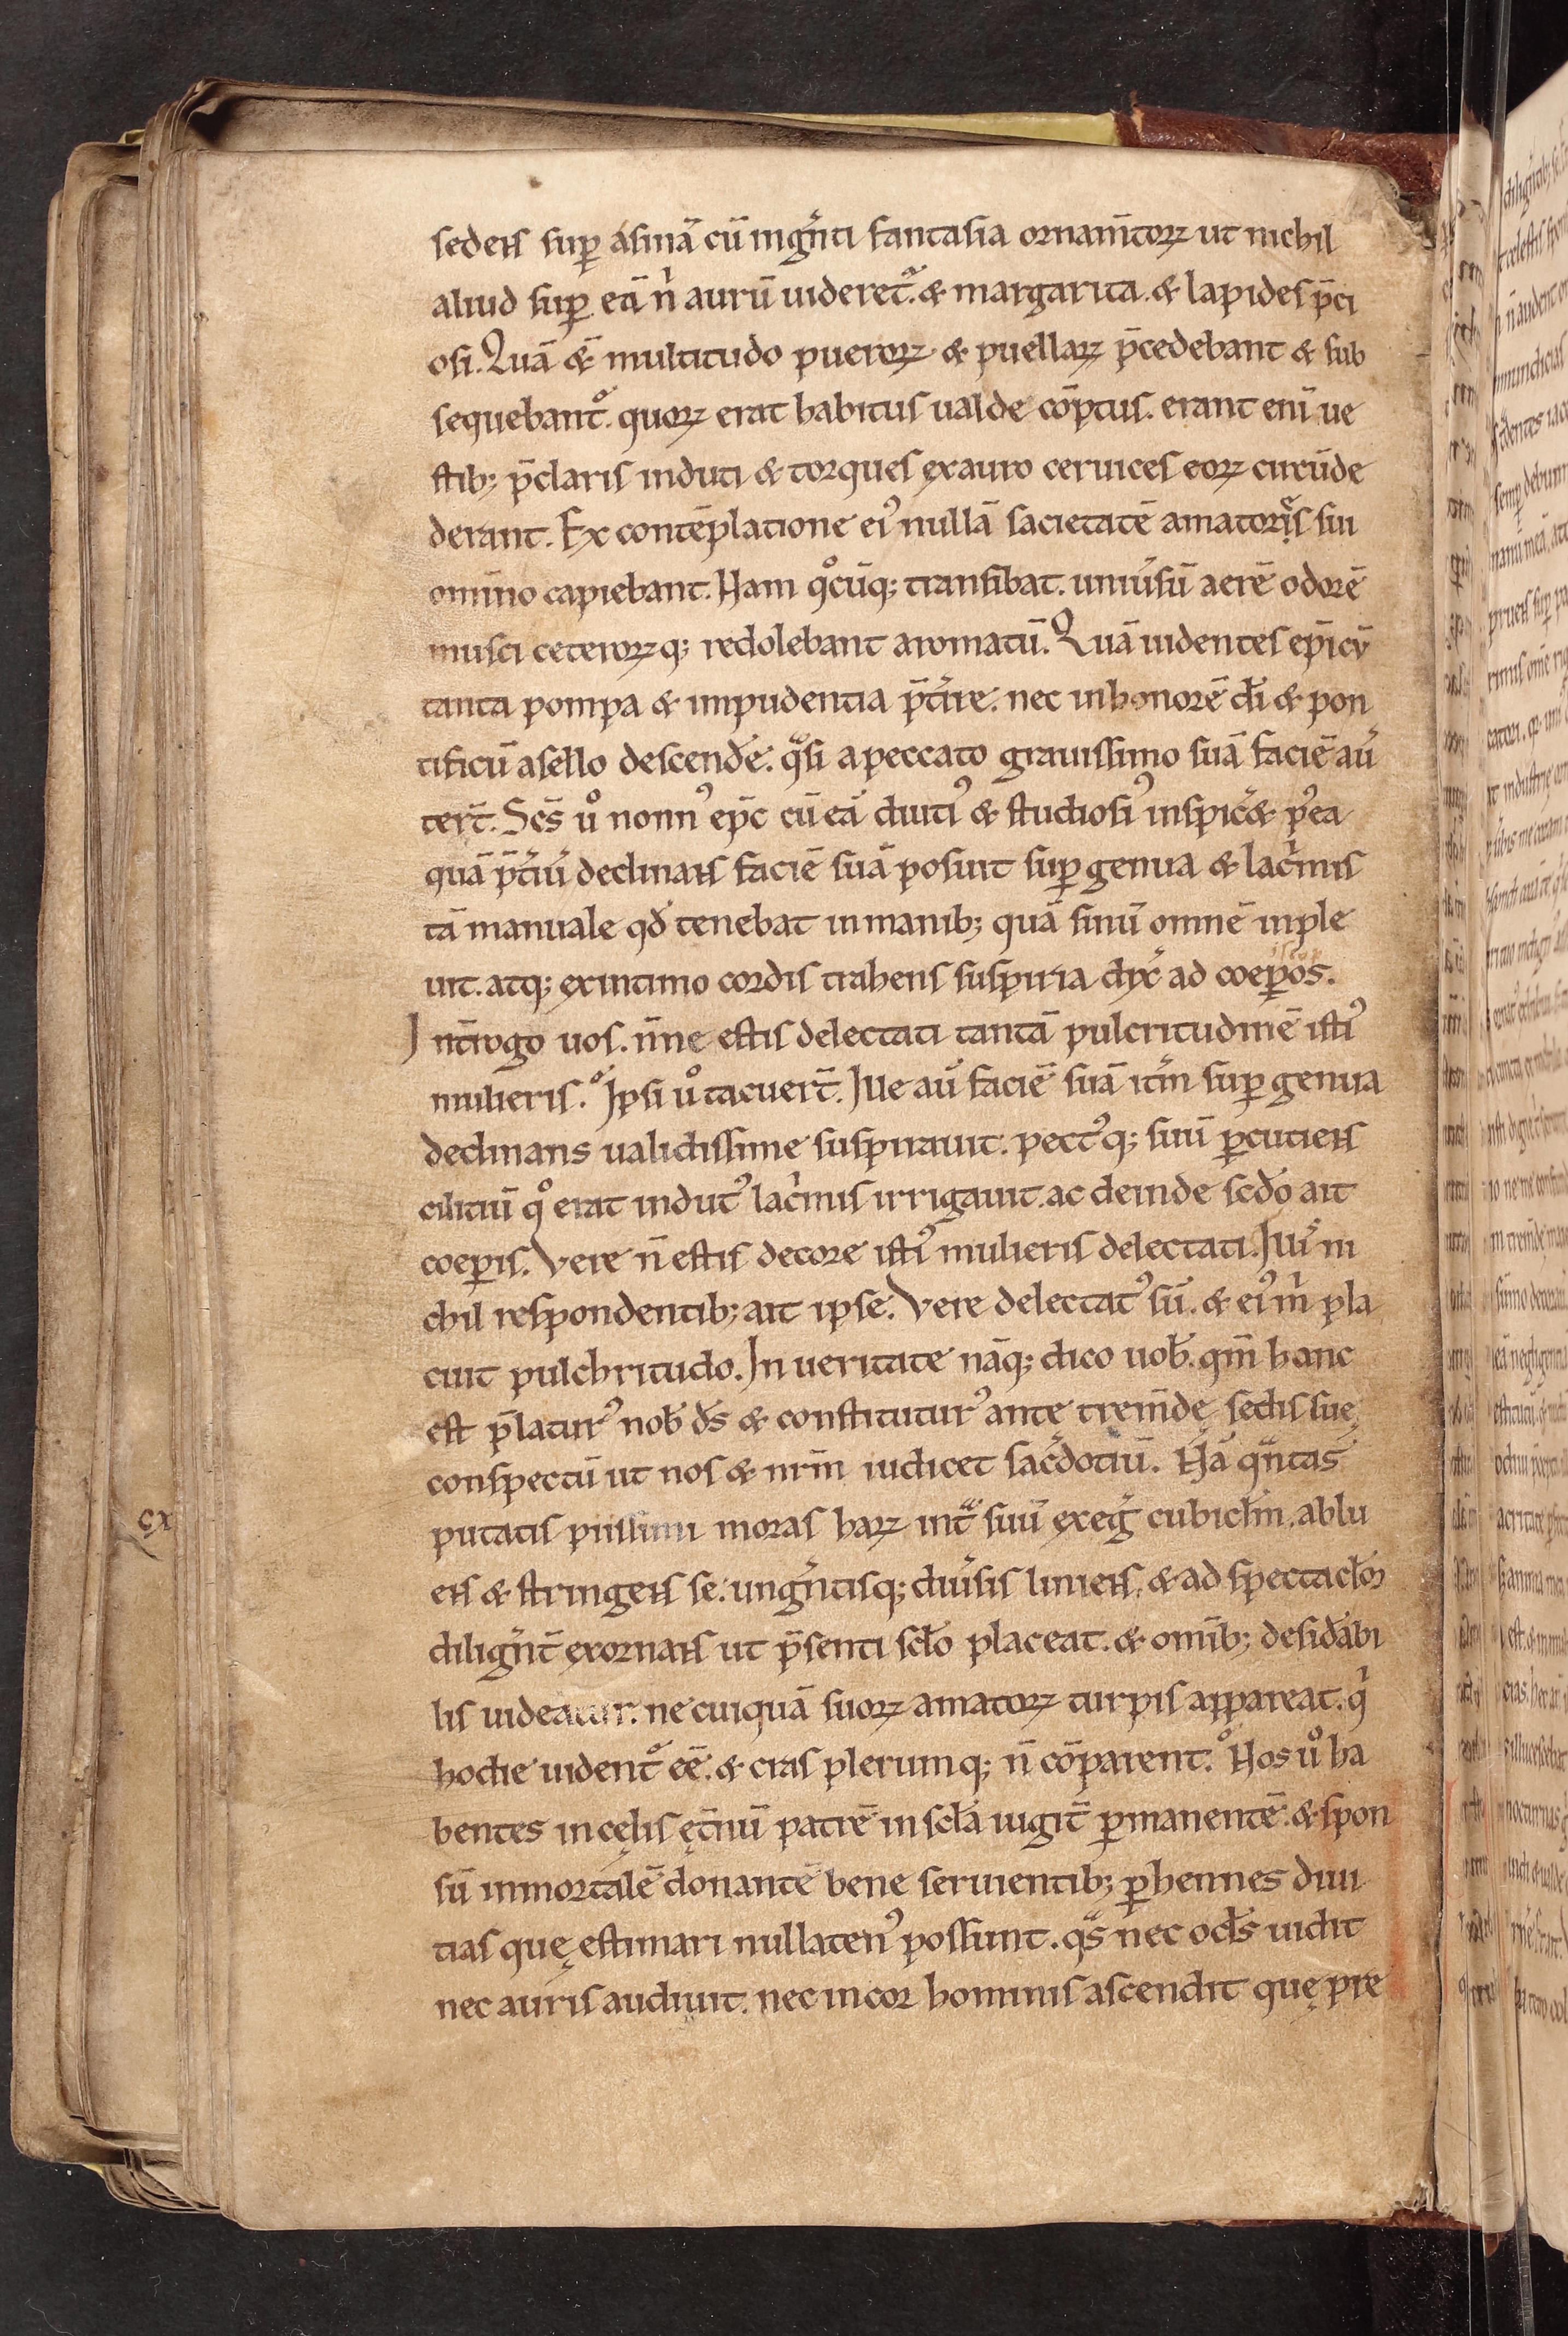 sedens sup̄ asinā cū ingn̄ti fantasia ornam̄torꝝ ut nichil
aliud sup̄ eā n̄ aurū uideret᷑. & margarita. & lapides p̄ci
osi. Quā &̄ multitudo puerorꝝ & puellarꝝ p̄cedebant & sub
sequebant᷑. quorꝝ erat habitus ualde cōptus. erant eni ue
stib; p̄claris induti & torques ęx auro ceruices eorꝝ circūde
derant. Ex contēplatione ei᾽ nullā sacietatē amatores sui
omīno capiebant. Nam qͦcūq; transibat. uniūsū aerē odorē
musci ceterorꝝq; redolebant aromatū. Quā uidentes ep̄i cū
tanta pompa & impudentia p̄tire. nec in honorē dī & pon
tificū asello descende᷑. qͣsi a peccato grauissimo suā faciē aū
tert̄. Scs̄ uͦ nonn᾽ ep̄c cū eā diuti᾽ & studiosi᾽ inspic& p᾽ea
quā p̄tiū declinans faciē suā posuit sup̄ genua & lac̄mis
tā manuale qd̄ tenebat in manib; quā sinū omnē inple
uit. atq; ęx intimo cordis trahens suspiria dix̄ ad coep̄os.
Int̄rogo uos. n̄ne estis delectati tantā pulcritudinē isti᾽
mulieris. Ipsi uͦ tacuert̄. Ille aū faciē suā itm̄ sup̄ genua
declinans ualidissime suspirauit. pect᾽q; suū p̄cutiens
cilitiū qͦ erat indut᾽ lac̄mis irrigauit. ac deinde scd̄o ait
coep̄is. Vere n̄ estis decore isti᾽ mulieris delectati. Illis ni
chil respondentib; ait ipse. Vere delectat᾽ sū. & ei᾽ m̄ pla
cuit pulchritudo. In ueritate nāq; dico uob̄. qm̄ hanc
est p̄latur᾽ nob̄ ds̄ & constitutur᾽ ante trem̄dę sedis suę
conspectū ut nos & nr̄m iudicet sac̄dotiū. Nā qͣntas
putatis piissimi moras harꝝ int̄ suū ęxeḡ cubiclm̄, ablu
ens & stringens se. ungn̄tisq; diūsis liniens. & ad spectaclo᷑
dilign̄t̄ ęxornans ut p̄senti sclo placeat. & om̄ib; desid̄abi
lis uideatur. ne cuiquā suorꝝ amatorꝝ turpis appareat. q̄
hodie uident᷑ eē. & cras plerumq; n̄ cōparent. Nos uͦ ha
bentes in cęlis ęt̄nū patrē in scła iugit̄ p̄manentē. & spon
sū inmortalē donantē bene seruientib; p̄hennes diui
tias quę estimari nullaten᾽ possunt. qͣs nec ocls uidit
nec auris audiuit. nec in cor hominis ascendit quę pre
cx